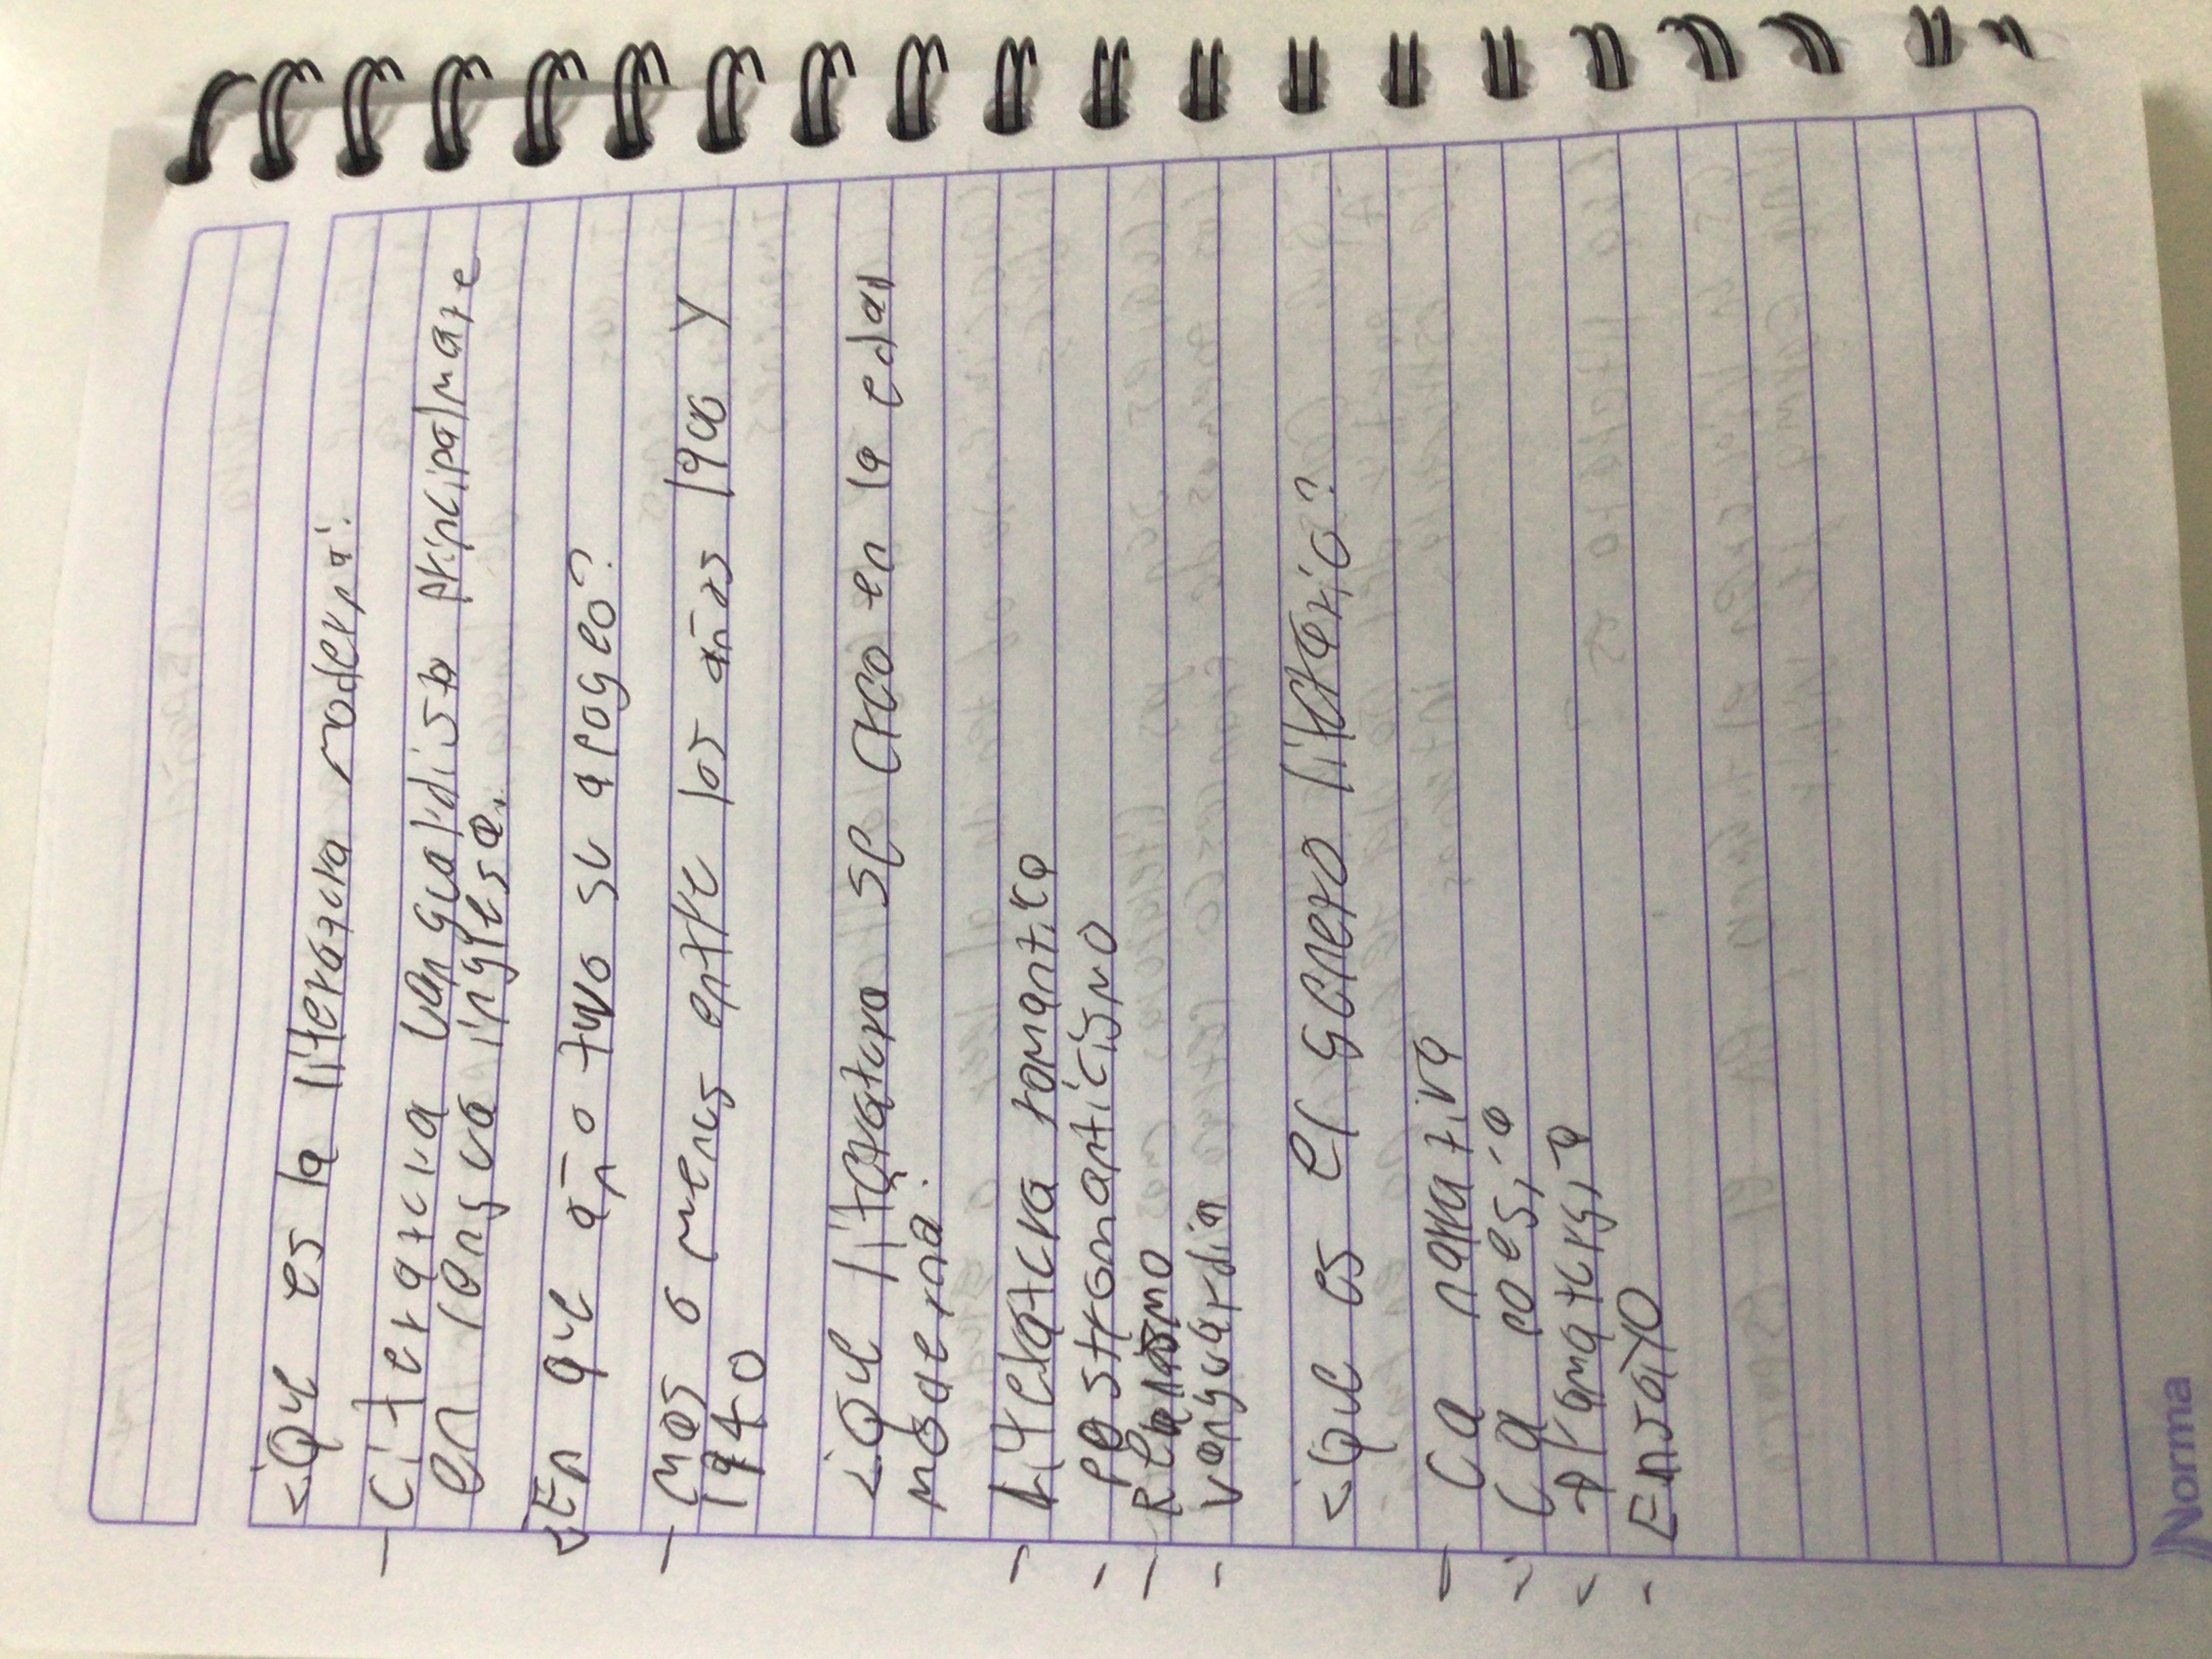 ¿Que es la literatura moderna?
- Literatura vanguardista principalmate
en lengua inglesa.
¿En que año tuvo su apogeo?
- Mas o menos entre los años 1900 y
1940
¿Que literatura se creo en la edad
moderna.
- Literatura romantica
- Postromanticismo
- Realismo
- Vanguardia
¿Que es el genero literario?
- La narrativa
- La poesia
- Dramaturgia
- Ensayo
Norma